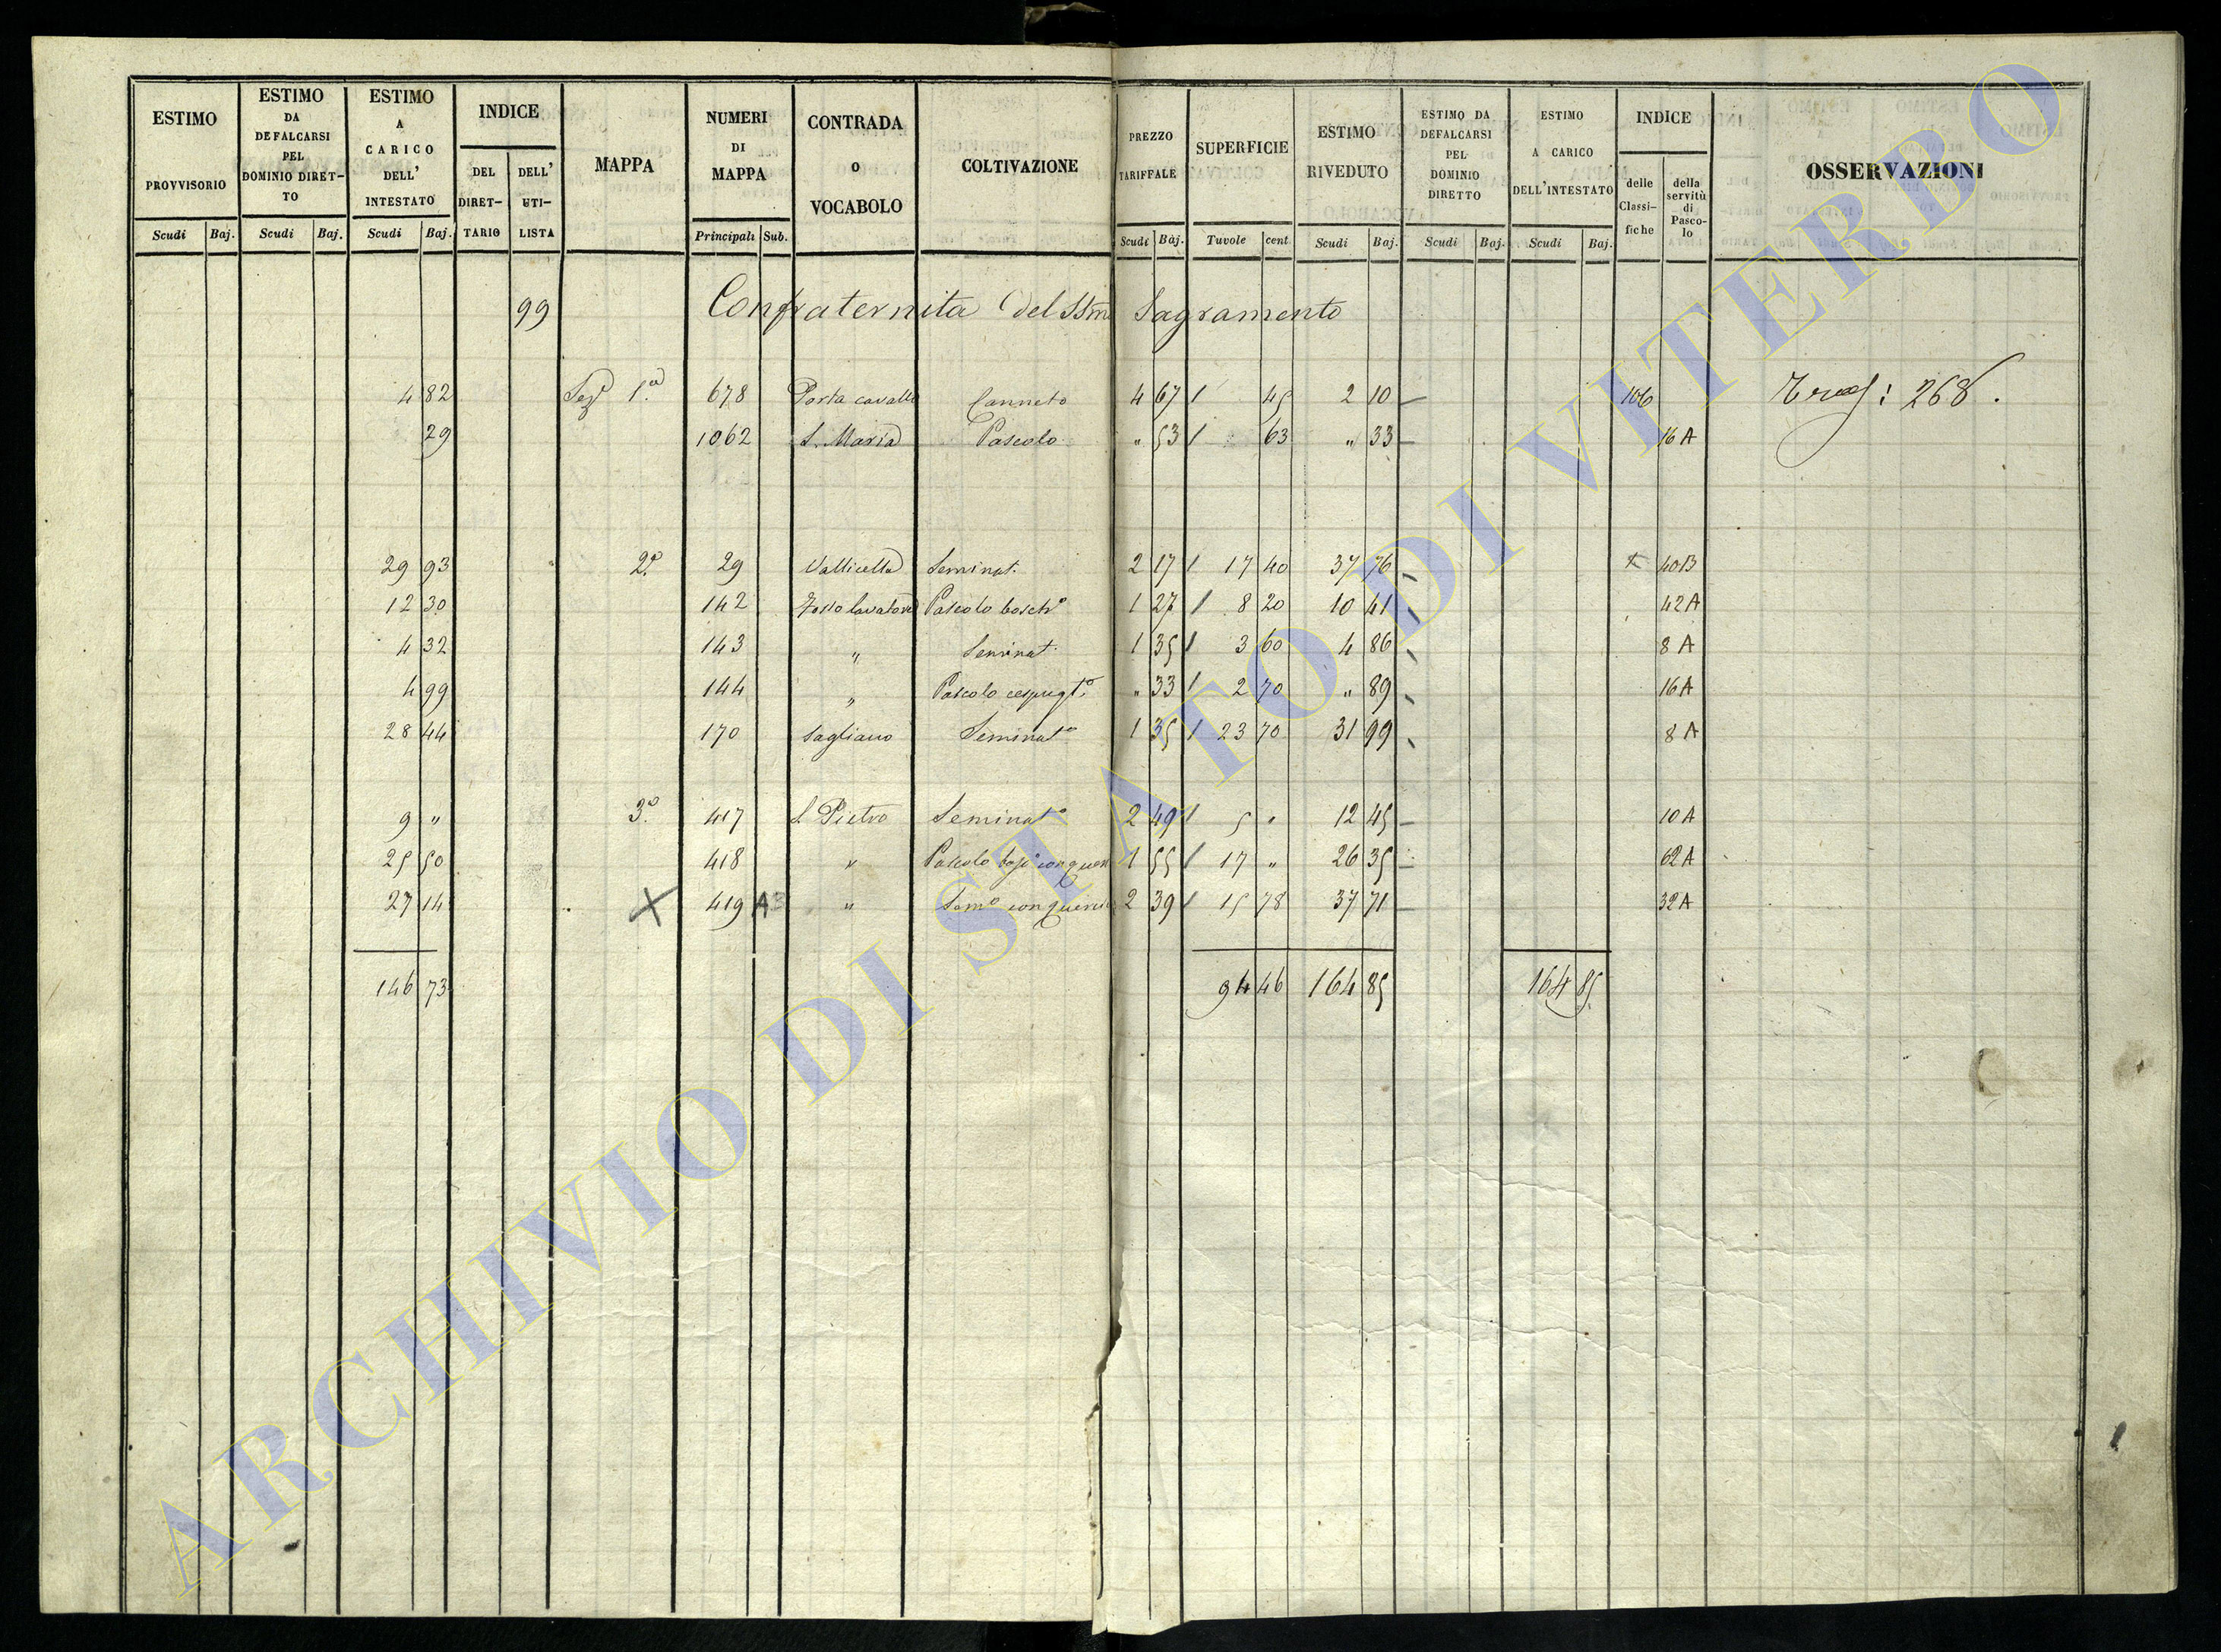 ESTIMO PROVVISORIO | ESTIMO DA DEFALCARSI PEL DOMINIO DIRETTO | ESTIMO A CARICO DELL' INTESTATO | INDICE DEL DIRETTARIO | DELL' UTILISTA | MAPPA | NUMERI DI MAPPA | CONTRADA O VOCABOLO | COLTIVAZIONE | PREZZO TARIFFALE | SUPERFICIE | ESTIMO RIVEDUTO | ESTIMO DA DEFALCARSI PEL DOMINIO DIRETTO | ESTIMO A CARICO DELL'INTESTATO | INDICE delle Classifiche | della servitù di Pascolo | OSSERVAZIONI
Scudi | Baj. | Scudi | Baj. | Scudi | Baj. | Principali | Sub. | Scudi | Baj. | Tavole | cent | Scudi | Baj. | Scudi | Baj. | Scudi | Baj.
99 Confraternita del SSmo Sagramento
4 82 Seze 1a 678 Porta cavalle Canneto 4 67 / 45 2 10 106 268.
29 1062 S. Maria Pascolo " 53 / 63 " 33 16 A
29 93 2a 29 Vallicella Seminat. 2 17 / 17 40 37 76 x 40B
12 30 142 Fosso lavatore Pascolo bosco 1 27 / 8 20 10 41 42A
4 32 143 " Seminat. 1 35 / 3 60 4 86 8 A
4 99 144 " Pascolo cespugo " 33 / 2 70 " 89 16 A
28 44 170 Sagliano Seminato 1 35 / 23 70 31 99 8 A
9 " 3a 417 S. Pietro Seminato 2 49 / 5 " 12 45 10 A
25 50 418 " Pascolo con querc 1 55 / 17 " 26 35 62 A
27 14 X 419 " Semo con querci 2 39 / 15 78 37 71 32 A
146 73 94 46 164 85 164 85
ARCHIVIO DI STATO DI VITERBO